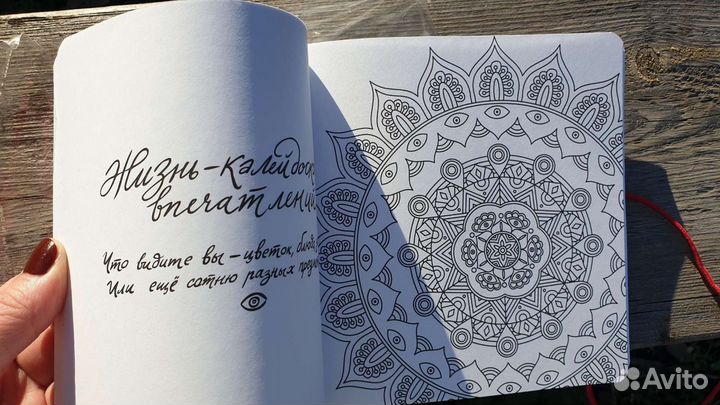 Жизнь-калейдоск
впечатлений
Что видите вы - цветок, блюдо,
Или ещё сотню разных предме
Avito